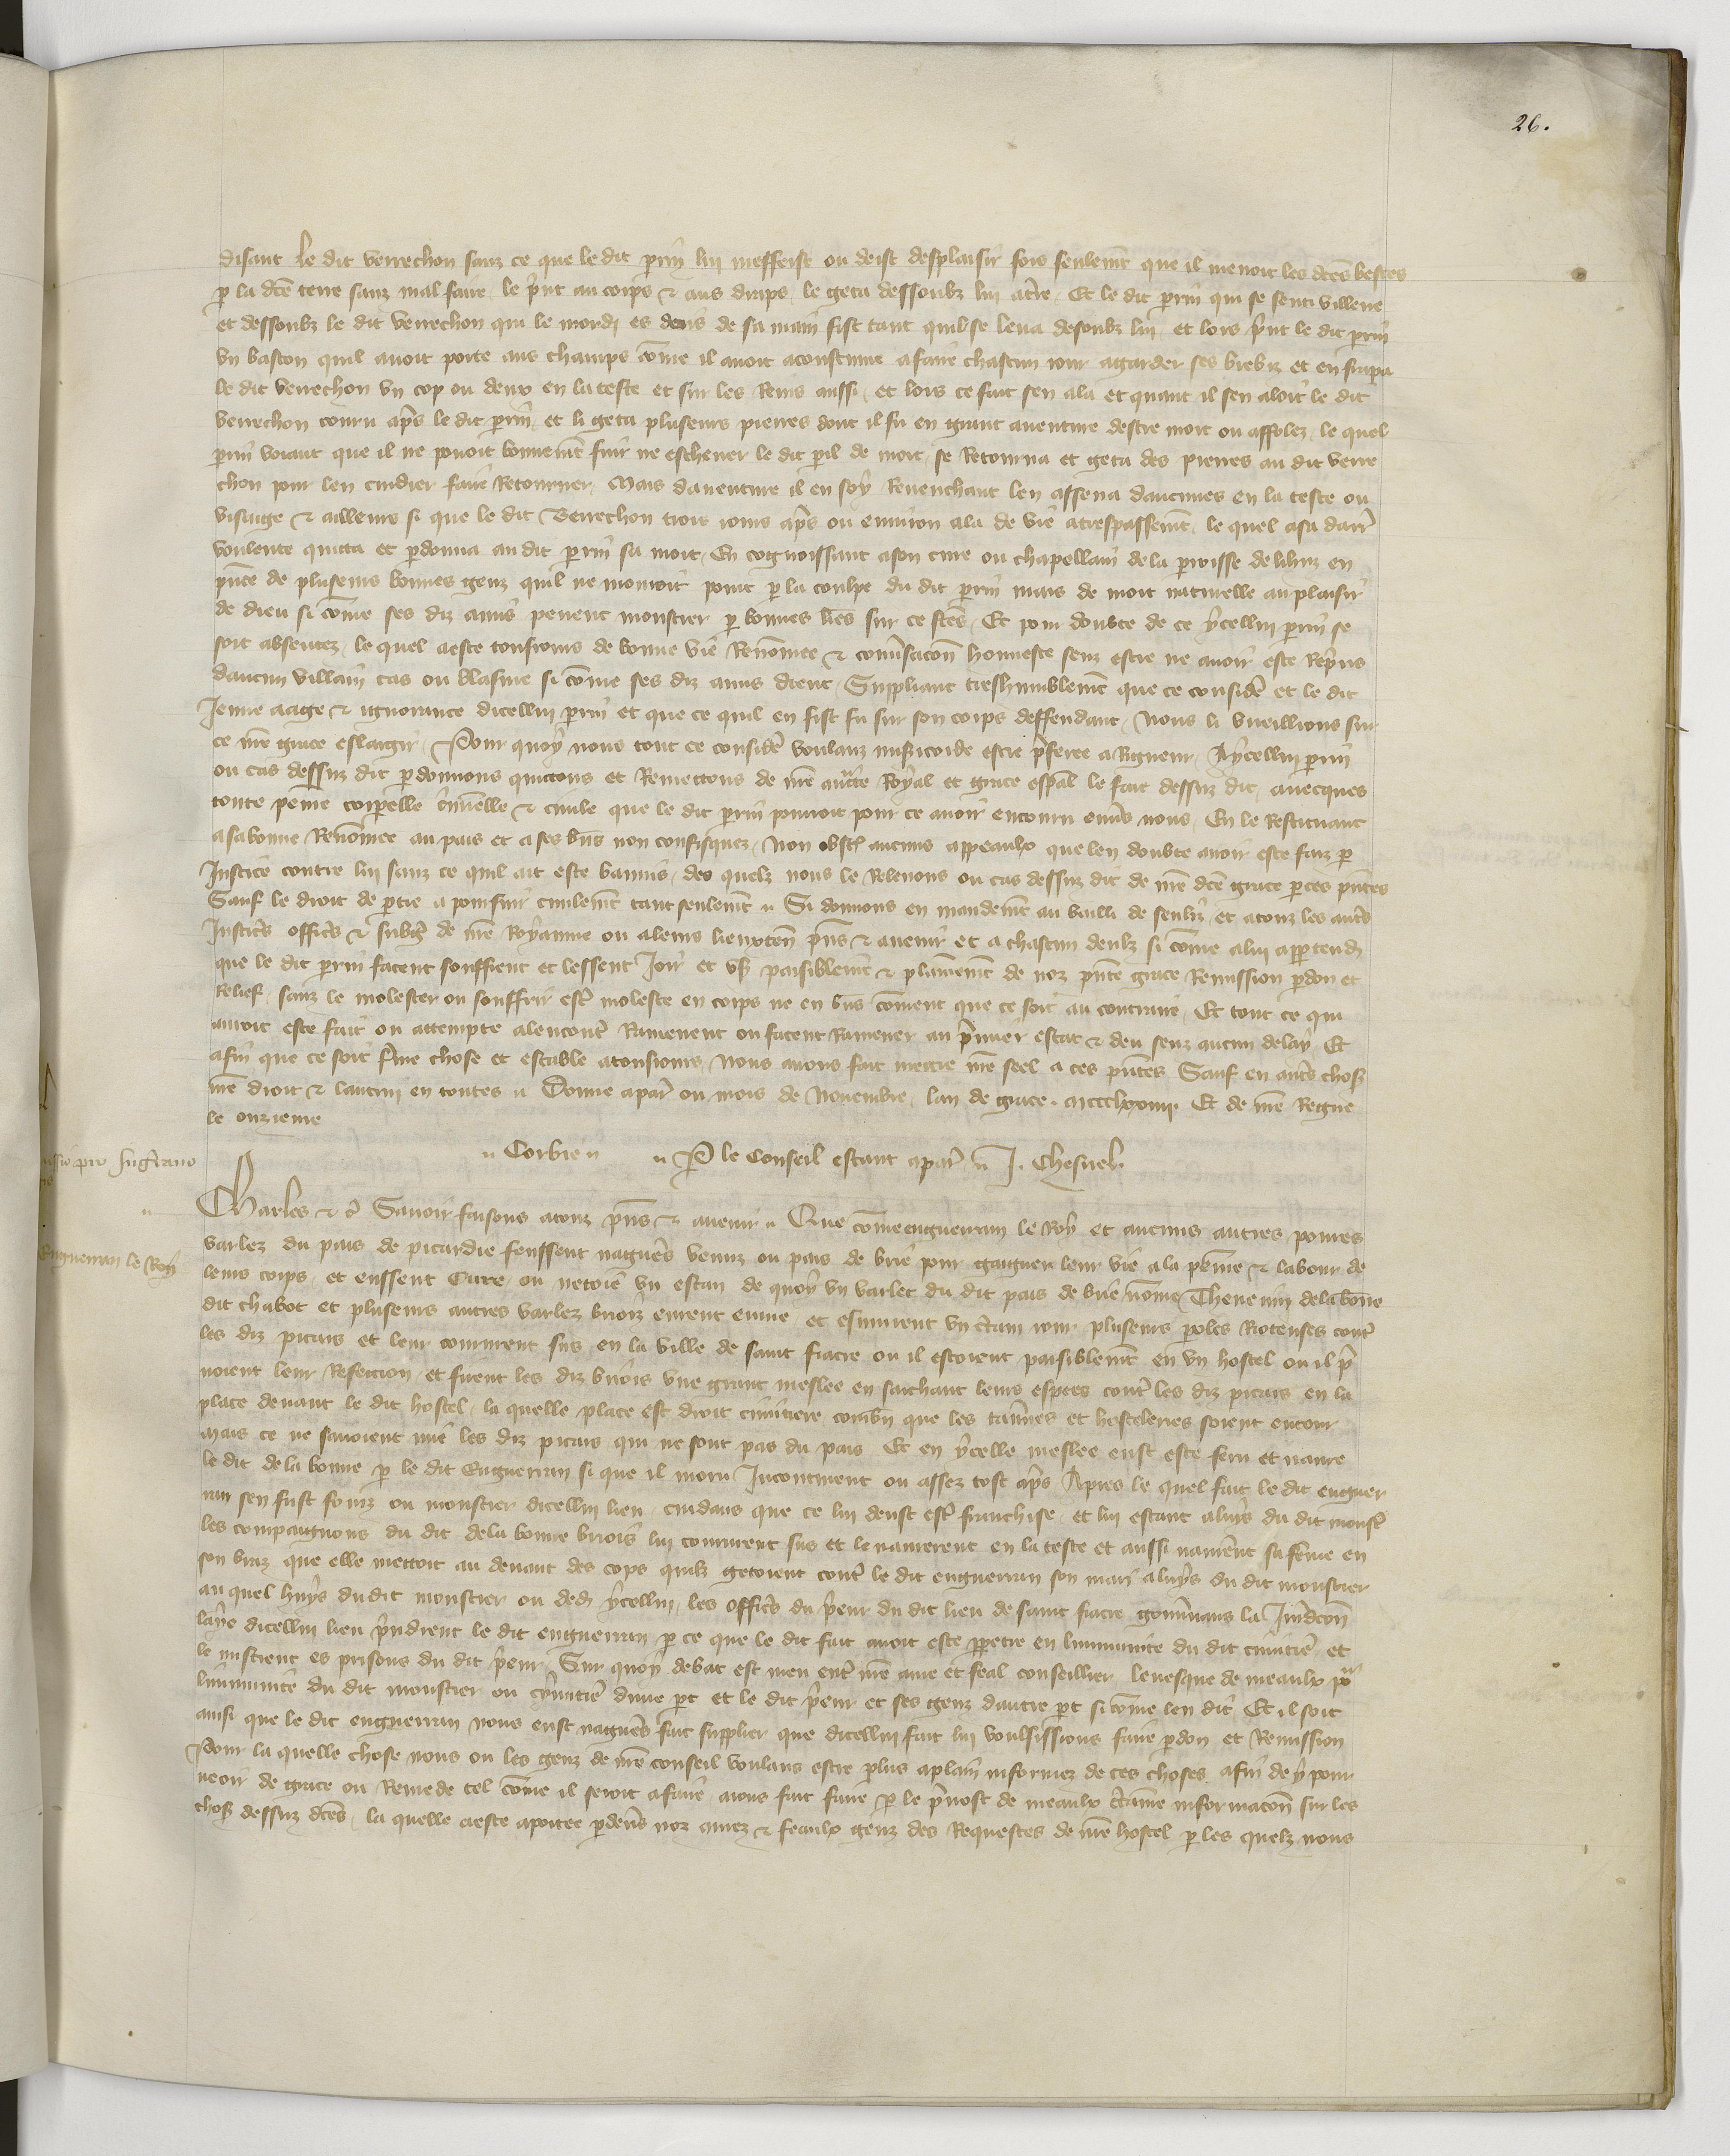 26.
disant le dit verrechon sanz ce que le dit perrin lui meffeist ou deist desplaisir fors seulemt que il menoit les dces bestes
p la dce terre sanz mal faire le prit au corps & aus draps le geta dessoubz lui a tre Et le dit perrin qui se senti villene
et dessoubz le dit verrechon qui le mordi es dois de sa main fist tant quil se leva desoubz lui et lors prit le dit perrin
un baston quil avoit porte aus champs come il avoit acoustume a faire chascun jour a garder ses brebiz et en frapa
le dit verrechon un cop ou deux en la teste et sur les Reins aussi et lors ce fait sen ala et quant il sen aloit le dit
verrechon couru aps le dit perrin et li geta pluseurs pierres dont il fu en grant aventure destre mort ou affolez le quel
perrin voiant que il ne povoit bonnemt fuir ne eschever le dit peril de mort se Retourna et geta des pierres au dit verre
chon pour len cuidier faire Retourner Mais daventure il en soy Revenchant len assena daucunes en la teste ou
visaige & ailleurs si que le dit Verrechon trois jours aps ou environ ala de vie a trespassemt le quel a sa darr
voulente quitta et pdonna au dit perrin sa mort En cognoissant a son cure ou chapellain de la parroisse de lihuz en
pnce de pluseurs bonnes genz quil ne mouroit point p la coulpe du dit perrin mais de mort naturelle au plaisir
de dieu si come ses diz amis pevent monstrer p bonnes lres sur ce fces Et pour doubte de ce ycellui perrin se
soit absentez le quel a este tousjours de bonne vie Renomee & conversacon honneste senz estre ne avoir este Repris
daucun villain cas ou blasme si come ses diz amis dient Suppliant treshumblemt que ce consider et le dit
Jeune aage & ignorance dicellui perrin et que ce quil en fist fu sur son corps deffendant Nous li vueillions sur
ce nre grace eslargir Pour quoy nous tout ce consider voulanz misericorde estre preferee a Rigueur A ycellui perrin
ou cas dessuz dit pdonnons quittons et Remettons de nre aucte Royal et grace espal le fait dessuz dit avecques
toute peine corporelle criminelle & civile que le dit perrin pourroit pour ce avoir encouru envs nous En le Restituant
a sa bonne Renomee au pais et a ses biens non confisquez Non obst aucuns appeaulx que len doubte avoir este faiz p
Justice contre lui sanz ce quil ait este banniz des quelz nous le Relevons ou cas dessuz dit de nre dce grace p ces pntes
Sauf le droit de ptie a poursuir civilemt tant seulemt Si donnons en mandemt au bailli de senliz et a touz les autres
Justiciers officiers & subgez de nre Royaume ou a leurs lieuxten pns & avenir et a chascun deulx si come a lui appartendra
que le dit perrin facent souffrent et lessent Joir et user paisiblemt & plainemt de noz pnte grace Remission pdon et
Relief sanz le molester ou souffrir estre moleste en corps ne en biens coment que ce soit au contraire Et tout ce qui
auroit este fait ou attempte a lencontre Ramenent ou facent Ramener au premier estat & deu senz aucun delay Et
afin que ce soit ferme chose et estable a tousjours Nous avons fait mettre nre seel a ces pntes Sauf en autres choses
nre droit & lautrui en toutes Donne a par ou mois de Novembre lan de grace mccclxxiiii Et de nre Regne
le onzieme
Corbie P le Conseil estant a par J. Chesnel
Charles & c Savoir faisons a touz pns & avenir Que come enguerran le Roy et aucuns autres povres
varlez du pais de picardie feussent nagueres venuz ou pais de brie pour gaigner leur vie a la peine & labour de
leurs corps et eussent Cure ou netoie un estan de quoy un varlet du dit pais de brie nome Thevenin de la bonne
Enguerran le Roy
dit chabot et pluseurs autres varlez briois eurent envie et esmurent un ctain jour pluseurs paroles Rioteuses contre
les diz picars et leur coururent sus en la ville de saint fiacre ou il estoient paisiblemt en un hostel ou il pre
noient leur Refeccion et firent les diz briois une grant meslee en saichant leurs espees contre les diz picars en la
place devant le dit hostel la quelle place est droit cimitiere combn que les tavernes et hosteleries soient entour
mais ce ne savoient mie les diz picars qui ne sont pas du pais Et en ycelle meslee eust este feru et navre
le dit de la bonne p le dit Enguerran si que il moru Incontinent ou assez tost aps Apres le quel fait le dit enguer
ran sen fust fouiz ou monstier dicellui lieu cuidans que ce lui deust estre franchise et lui estant a luis du dit monstr
les compaignons du dit de la bonne briois lui coururent sus et le navrerent en la teste et aussi navrerent sa feme en
son braz que elle mettoit au devant des cops quilz getoient contre le dit enguerran son mari a luys du dit monstier
au quel huys du dit monstier ou dedens ycellui les officiers du prieur du dit lieu de saint fiacre gouvernans la Juridicon
laye dicellui lieu prindrent le dit enguerran p ce que le dit fait avoit este ppetre en limmunite du dit cimitiere et
le mistrent es prisons du dit prieur Sur quoy debat est meu entre nre ame et feal conseillier levesque de meaulx pour
limmunite du dit monstier ou cimitiere dune pt et le dit prieur et ses genz dautre pt si come len dit Et il soit
ainsi que le dit enguerran nous eust nagueres fait supplier que dicellui fait lui voulsissions faire pdon et Remission
Pour la quelle chose nous ou les genz de nre conseil voulans estre plus a plain informez de ces choses afin de y pour
veoir de grace ou Remede tel come il seroit a faire aions fait faire p le prevost de meaulx ctaine informacon sur les
choses dessuz dces la quelle a este aportee p devers noz amez & feaulx genz des Requestes de nre hostel p les quelz nous